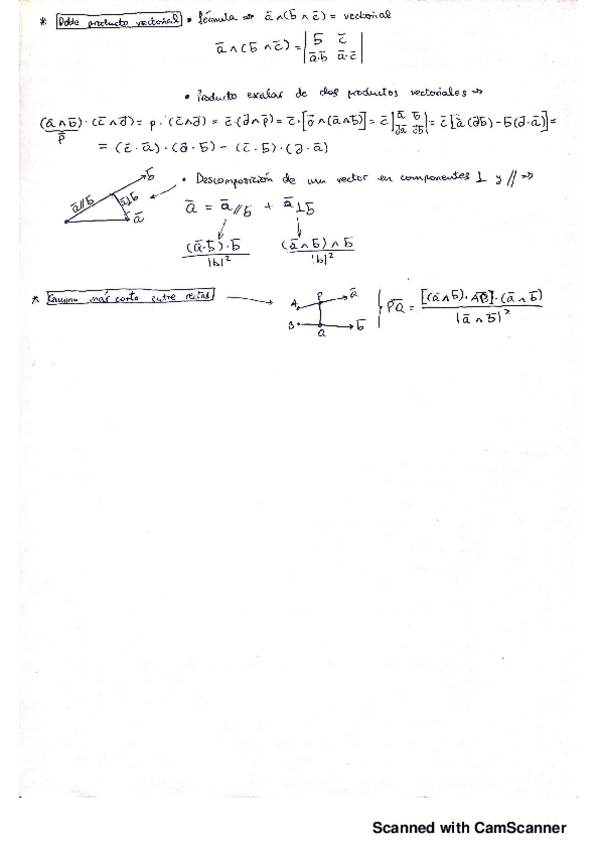 * Doble producto vectorial • fórmula ⇒ ā∧(b̄∧c̄) = vectorial
ā∧(b̄∧c̄) = | b̄ c̄ |
| ā·b̄ ā·c̄ |
• Producto escalar de dos productos vectoriales ⇒
(ā∧b̄)·(c̄∧d̄) = p·(c̄∧d̄) = c̄·(d̄∧p̄) = c̄·[d̄∧(ā∧b̄)] = c̄ | ā b̄ | = c̄[ā(d̄b̄) - b̄(d̄·ā)] =
p̄ | d̄ā d̄b̄ |
= (c̄·ā)·(d̄·b̄) - (c̄·b̄)·(d̄·ā)
• Descomposición de un vector en componentes ⊥ y // ⇒
b̄ ā//b̄ ā⊥b̄ ā
ā = ā//b̄ + ā⊥b̄
(ā·b̄)·b̄ (ā∧b̄)∧b̄
|b|² |b|²
* Camino más corto entre rectas
A P ā
B Q b̄
P̄Q = [(ā∧b̄)·AB]·(ā∧b̄)
|ā∧b̄|²
Scanned with CamScanner